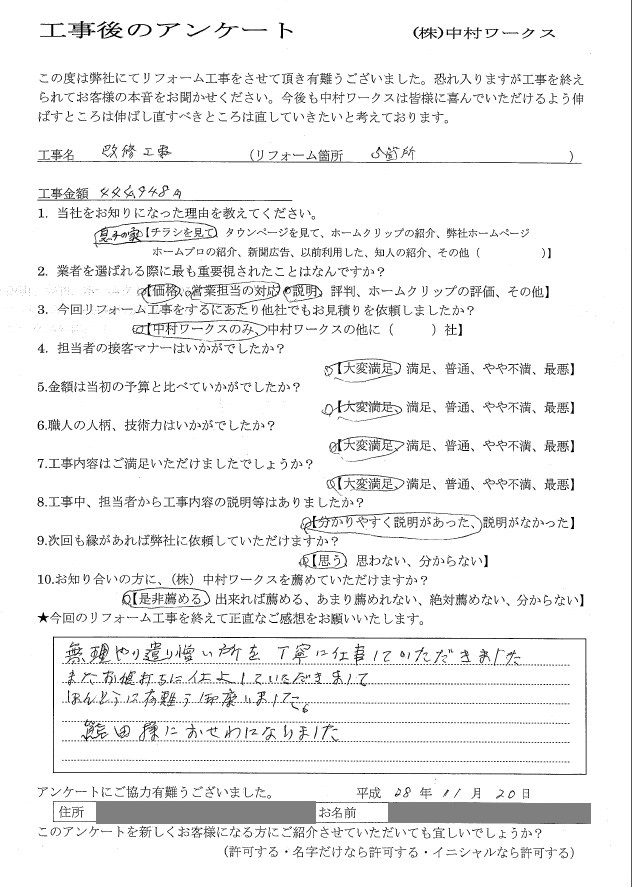 工事後のアンケート　(株)中村ワークス
この度は弊社にてリフォーム工事をさせて頂き有難うございました。恐れ入りますが工事を終え
られてお客様の本音をお聞かせください。今後も中村ワークスは皆様に喜んでいただけるよう伸
ばすところは伸ばし直すべきところは直していきたいと考えております。
工事名　改修工事　(リフォーム箇所　箇所　)
工事金額　円
1. 当社をお知りになった理由を教えてください。
息子の家【チラシを見て、タウンページを見て、ホームクリップの紹介、弊社ホームページ
ホームプロの紹介、新聞広告、以前利用した、知人の紹介、その他（　）】
2. 業者を選ばれる際に最も重要視されたことはなんですか？
【価格、営業担当の対応、説明、評判、ホームクリップの評価、その他】
3. 今回リフォーム工事をするにあたり他社でもお見積りを依頼しましたか？
【中村ワークスのみ、中村ワークスの他に（　）社】
4. 担当者の接客マナーはいかがでしたか？
【大変満足、満足、普通、やや不満、最悪】
5.金額は当初の予算と比べていかがでしたか？
【大変満足、満足、普通、やや不満、最悪】
6.職人の人柄、技術力はいかがでしたか？
【大変満足、満足、普通、やや不満、最悪】
7.工事内容はご満足いただけましたでしょうか？
【大変満足、満足、普通、やや不満、最悪】
8.工事中、担当者から工事内容の説明等はありましたか？
【分かりやすく説明があった、説明がなかった】
9.次回も縁があれば弊社に依頼していただけますか？
【思う、思わない、分からない】
10.お知り合いの方に、（株）中村ワークスを薦めていただけますか？
【是非薦める、出来れば薦める、あまり薦めれない、絶対薦めない、分からない】
★今回のリフォーム工事を終えて正直なご感想をお願いいたします。
無理やり遣り憎い所を丁寧に仕事していただきました
またお値打ちに仕上していただきまして
ほんとうに有難う御座いました。
熊田様におせわになりました
アンケートにご協力有難うございました。　平成 28 年 11 月 20 日
住所　お名前
このアンケートを新しくお客様になる方にご紹介させていただいても宜しいでしょうか？
（許可する・名字だけなら許可する・イニシャルなら許可する）